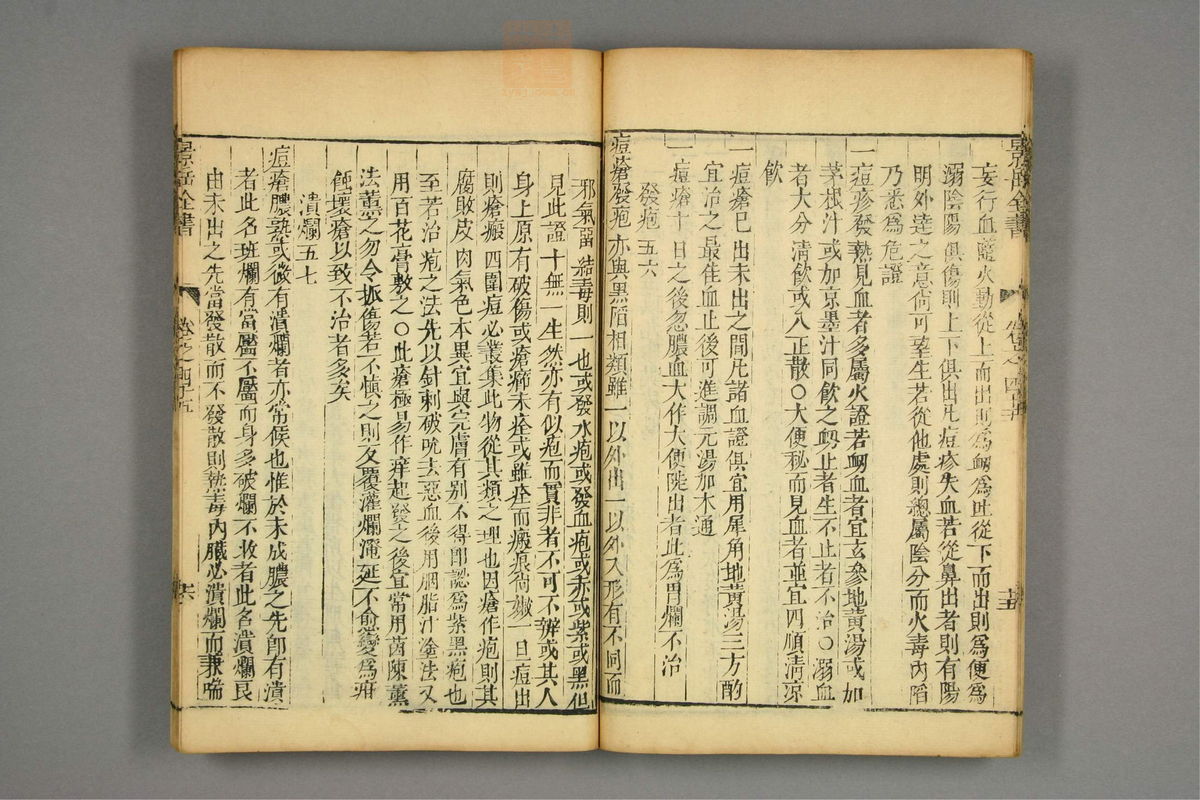 景岳全書
卷之四十五
十五
妄行血隨火動從上而出則為衂為吐從下而出則為便為
溺陰陽俱傷則上下俱出凡痘疹失血若從鼻出者則有陽
明外達之意尚可望生若從他處則總屬陰分而火毒內陷
乃悉為危證
一痘疹發熱見血者多屬火證若衂血者宜玄參地黃湯或加
茅根汁或加京墨汁同飲之衂止者生不止者不治○溺血
者大分清飲或八正散○大便秘而見血者並宜四順清涼
飲
一痘瘡已出未出之間凡諸血證俱宜用犀角地黃湯三方酌
宜治之最佳血止後可進調元湯加木通
一痘瘡十日之後忽膿血大作大便陡出者此為胃爛不治
發疱五六
痘瘡發疱亦與黑陷相類雖一以外出一以外入形有不同而
邪氣畱結毒則一也或發水疱或發血疱或赤或紫或黑但
見此證十無一生然亦有似疱而實非者不可不辨或其人
身上原有破傷或瘡癤未痊或雖痊而瘢痕尚嫩一旦痘出
則瘡瘢四圍痘必叢集此物從其類之理也因瘡作疱則其
腐敗皮肉氣色本異宜與完膚有别不得即認為紫黑疱也
至若治疱之法先以針刺破吮去惡血後用胭脂汁塗法又
用百花膏敷之○此瘡極易作痒起發之後宜常用茵陳薰
法薰之勿令抓傷若不慎之則反覆灌爛濔延不愈變為疳
蝕壞瘡以致不治者多矣
潰爛五七
痘瘡膿熟或微有潰爛者亦常候也惟於未成膿之先即有潰
者此名斑爛有當靨不靨而身多破爛不收者此名潰爛良
由未出之先當發散而不發散則熱毒內臟必潰爛而兼喘
景岳全書
卷之四十五
十六